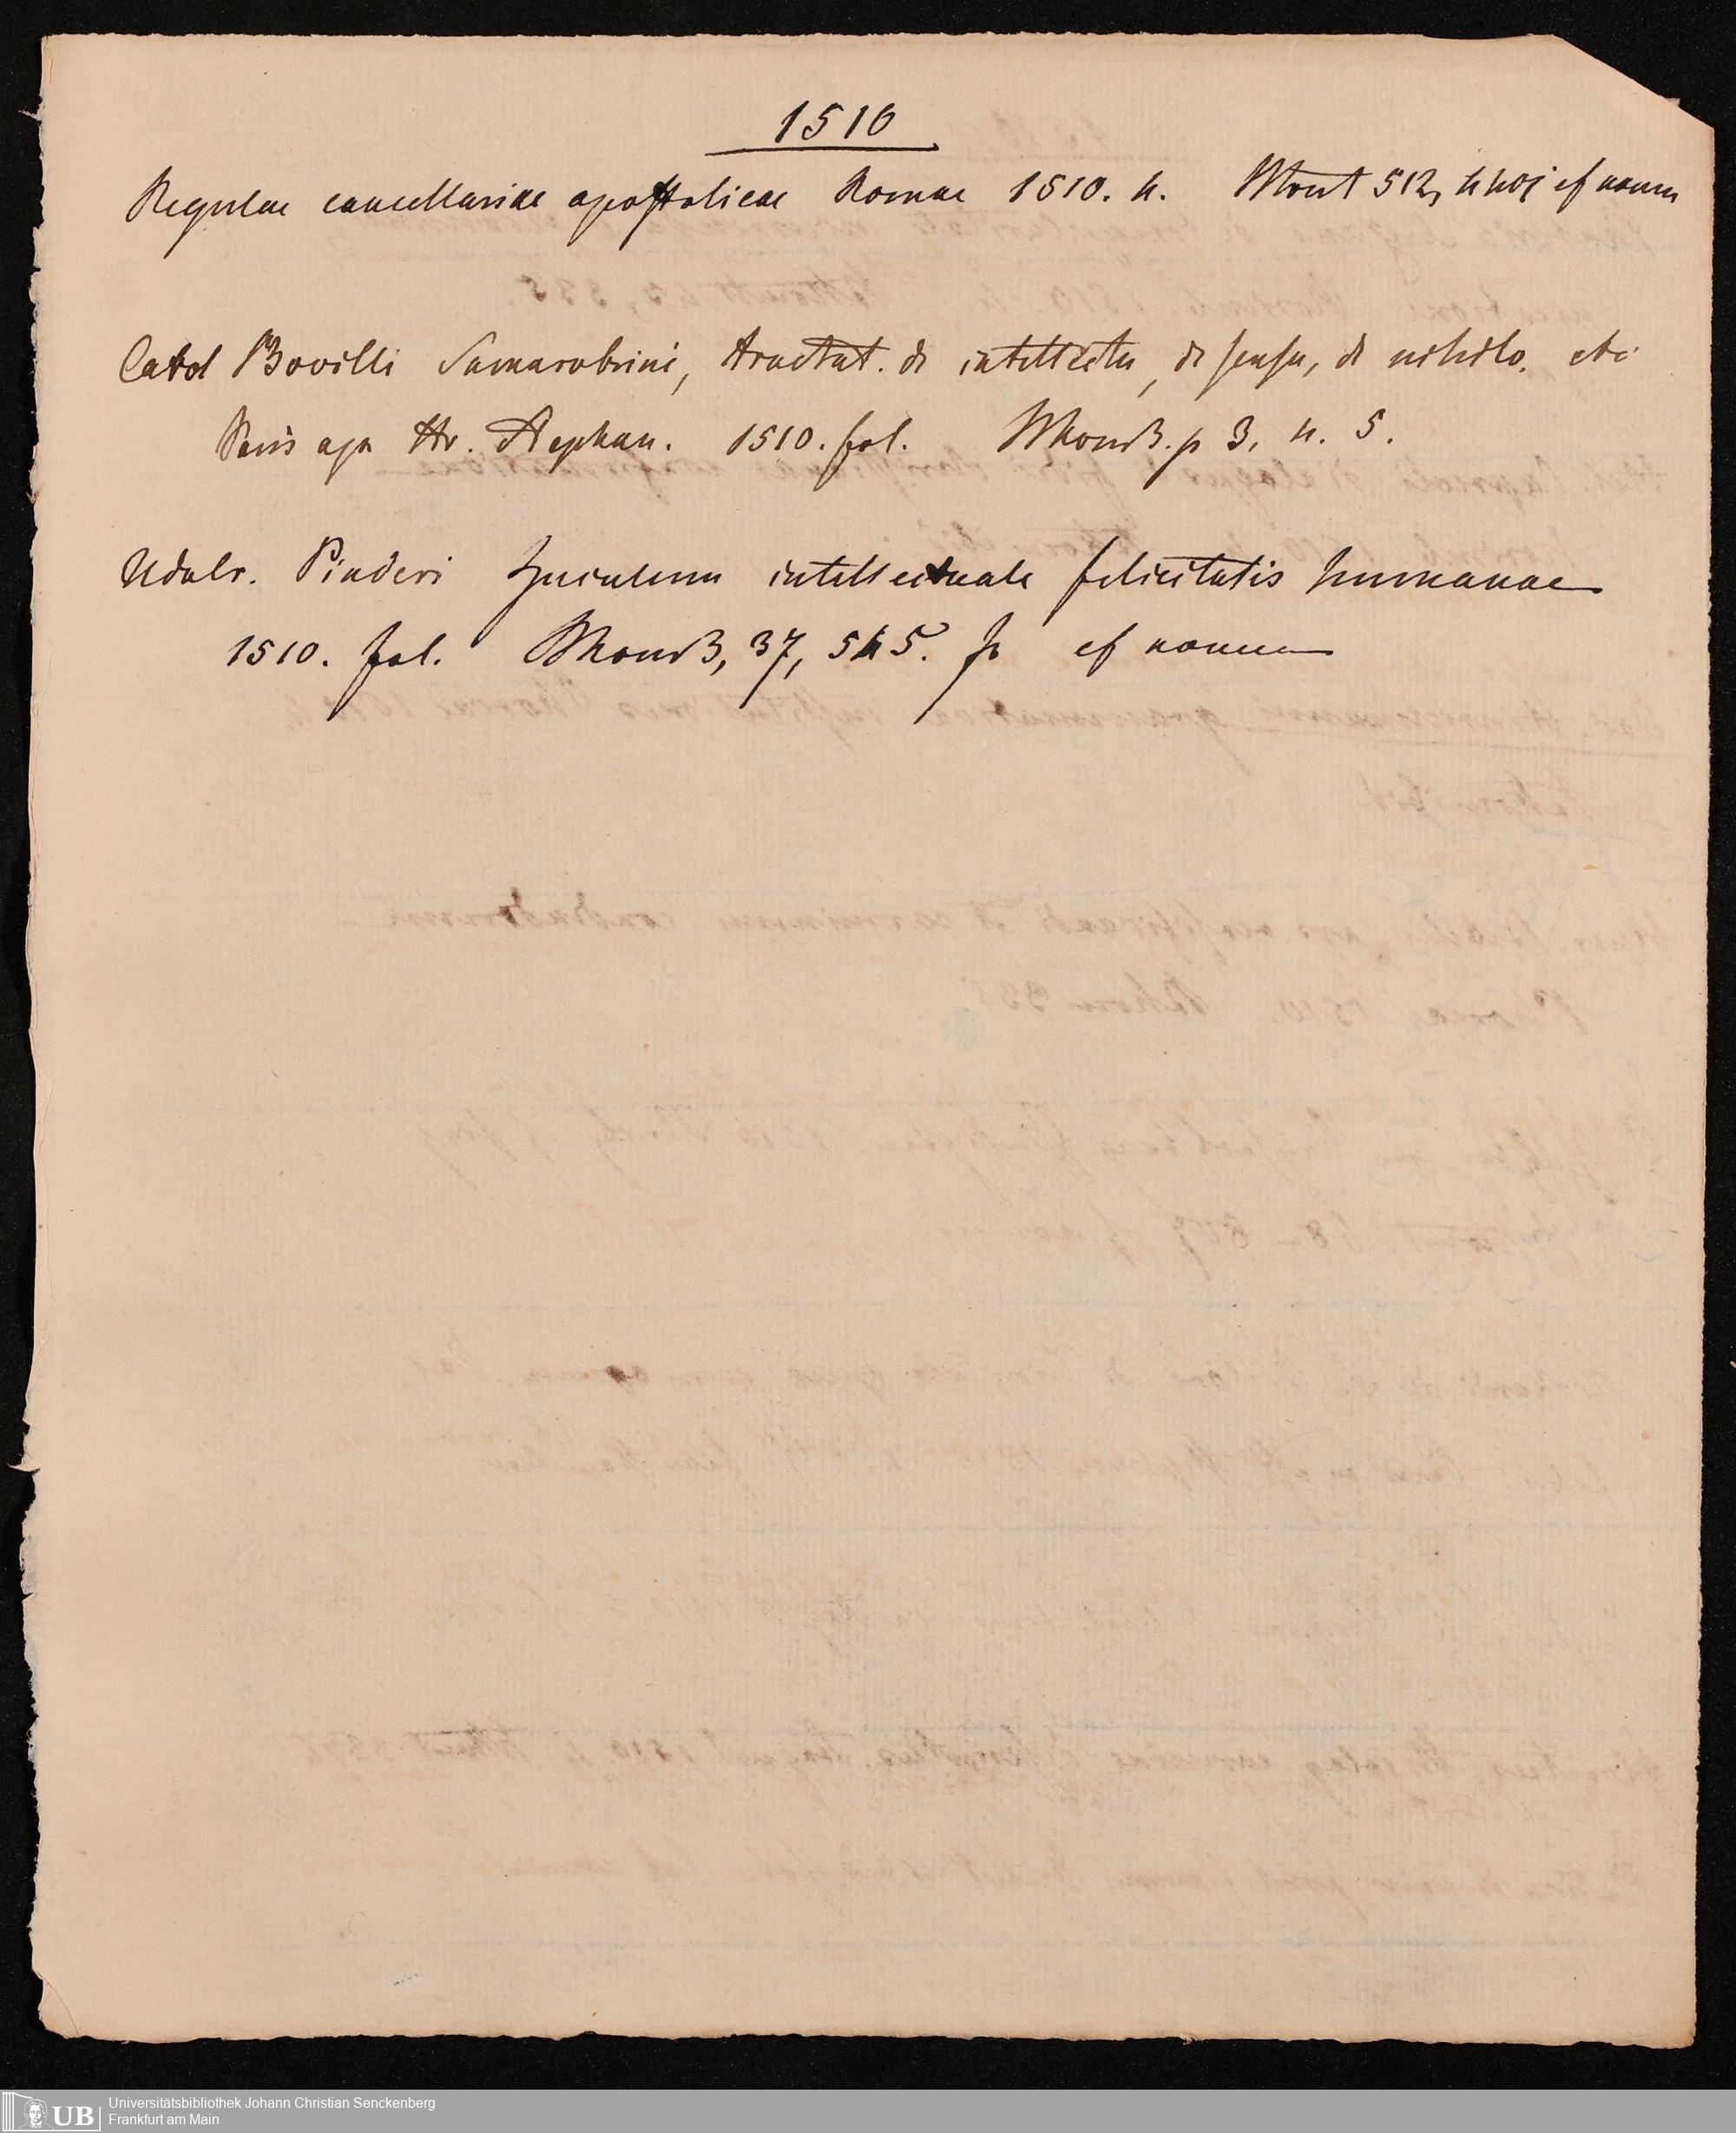 1510
Regulae cancellariae apostolicae Romae 1510. 4. Mont 512,
Carol Bovilli Samarobrini, tractat. de intellectu, de sensu, de nihilo. etc
Paris apu Hr. Stephan. 1510. fol. p 3, n. 5.
Udalr. Pinderi Speculum intellectuale felicitatis humanae
1510. fol. 37, 545.
Universitätsbibliothek Johann Christian Senckenberg
Frankfurt am Main
UB